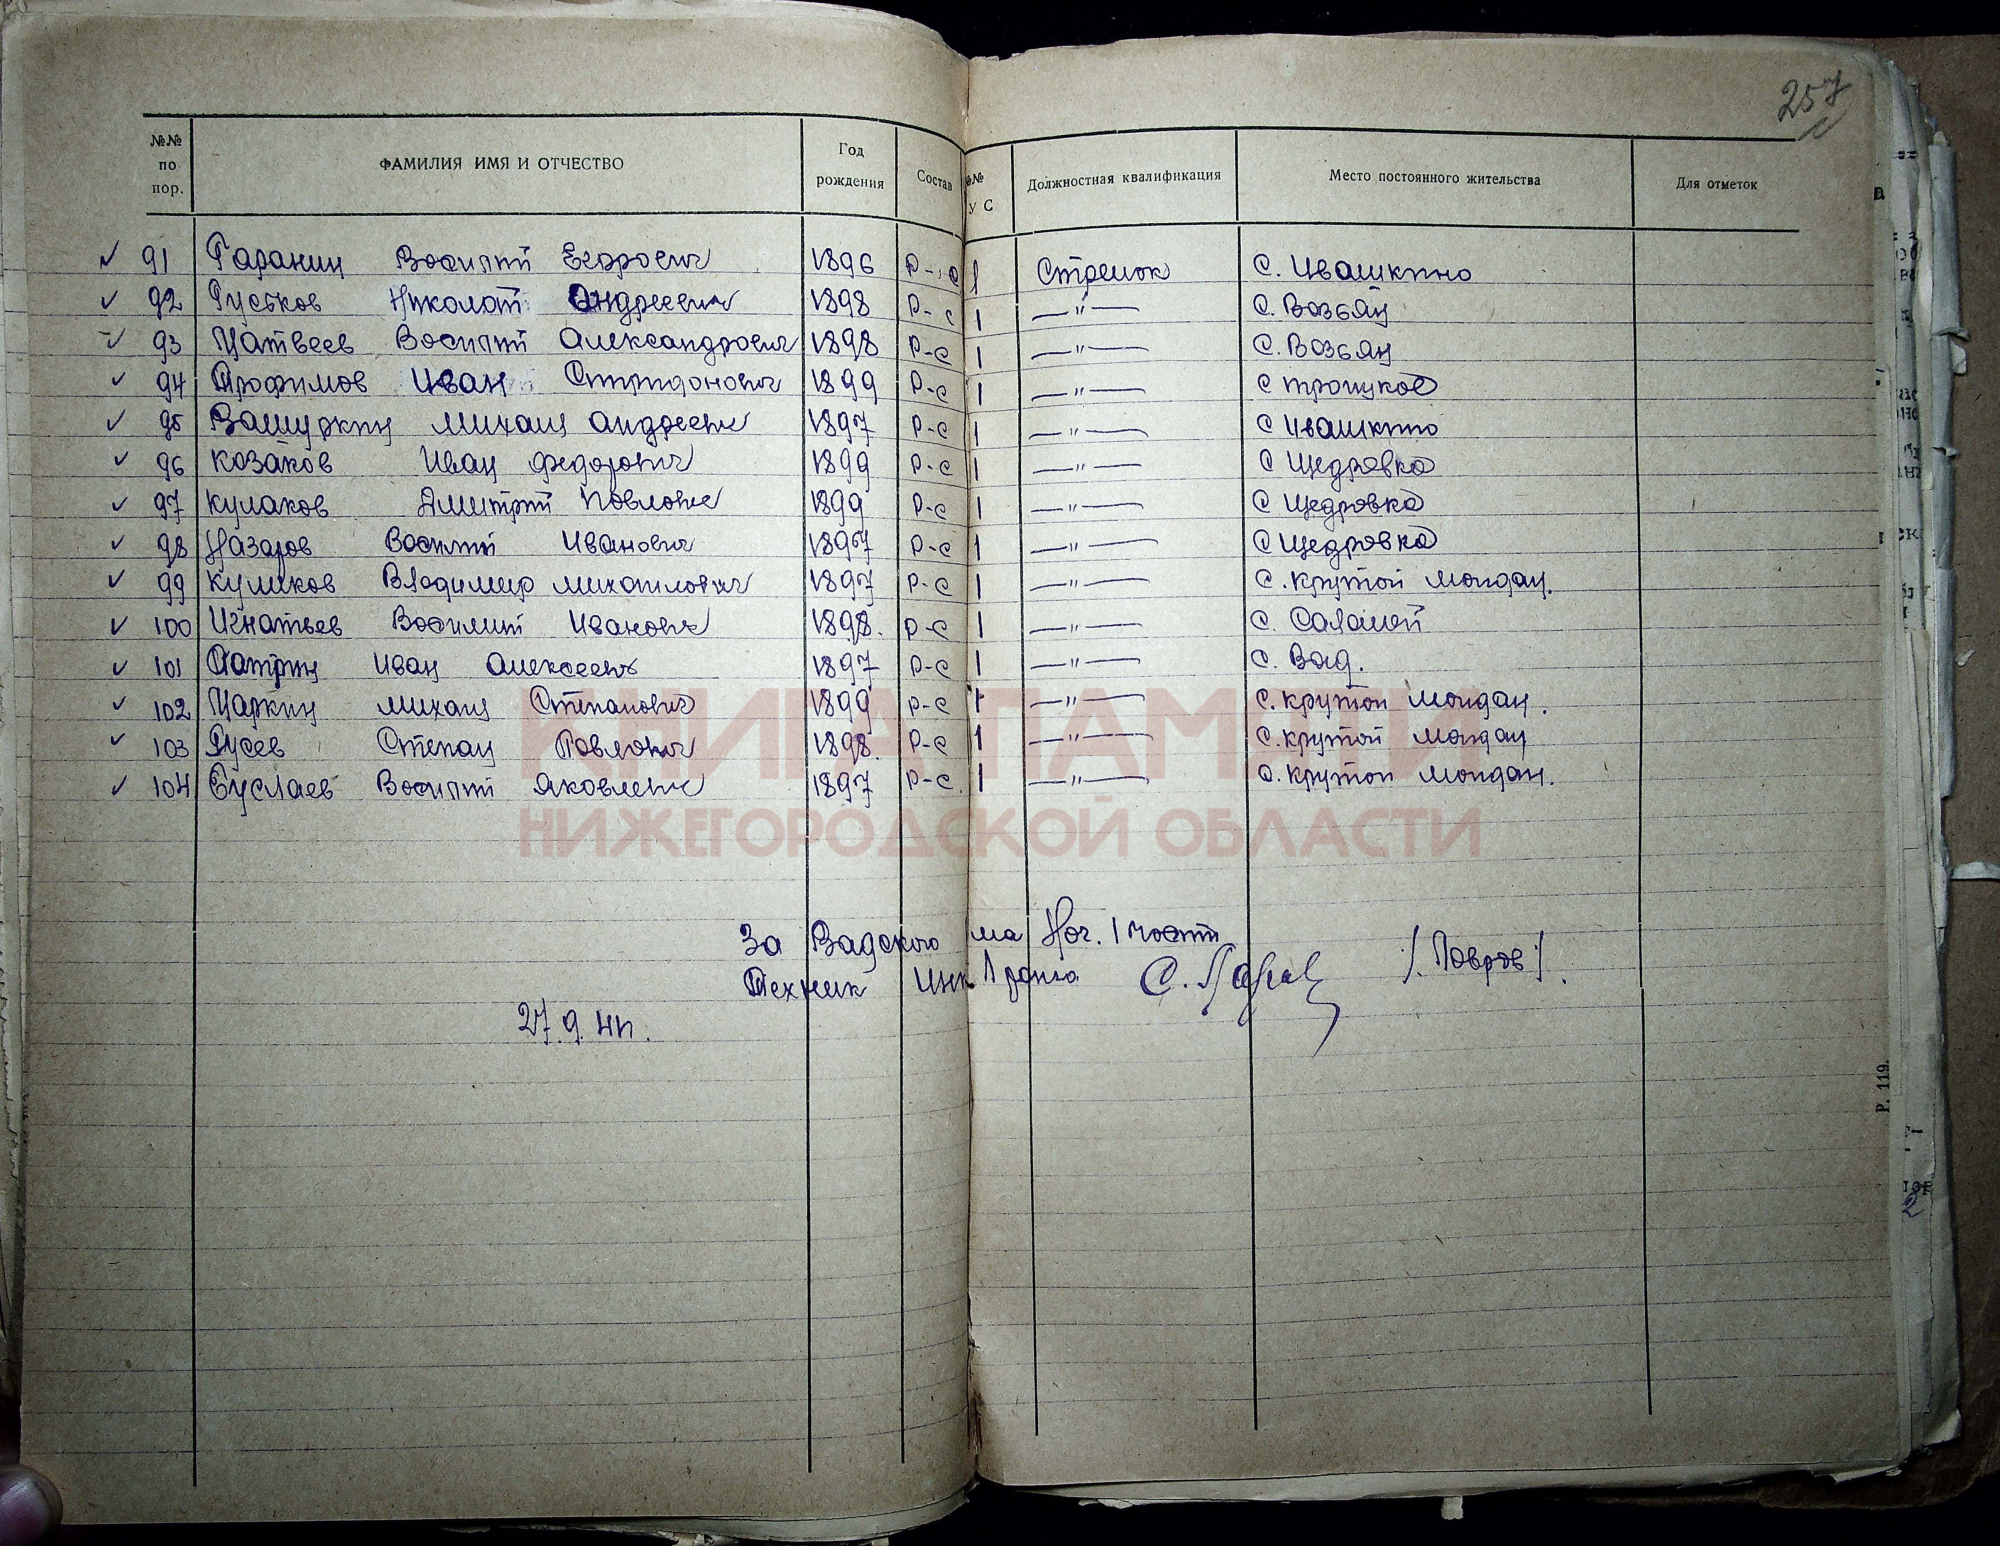 257
№№ по пор. ФАМИЛИЯ ИМЯ И ОТЧЕСТВО Год рождения Состав №№ У С Должностная квалификация Место постоянного жительства Для отметок
91 Гаранин Василий Егорович 1896 Р-с 1 Стрелок С. Ивашкино
92 Гуськов Николай Андреевич 1898 Р-с 1 —"— С. Возьян
93 Матвеев Василий Александрович 1898 Р-с 1 —"— С. Возьян
94 Трофимов Иван Спиридонович 1899 Р-с 1 —"— С Троицкое
95 Вашуркин Михаил Андреевич 1897 Р-с 1 —"— С Ивашкино
96 Козаков Иван Федорович 1899 Р-с 1 —"— С Щедровка
97 Кулаков Дмитрий Павлович 1899 Р-с 1 —"— С Щедровка
98 Назаров Василий Иванович 1897 Р-с 1 —"— С Щедровка
99 Куликов Владимир Михайлович 1897 Р-с 1 —"— С. Крутой Майдан.
100 Игнатьев Василий Иванович 1898. Р-с 1 —"— С. Салалей
101 Патрин Иван Алексеевич 1897 Р-с 1 —"— С. Вад.
102 Царкин Михаил Степанович 1899 Р-с 1 —"— С. Крутой Майдан.
103 Гусев Степан Павлович 1898. Р-с 1 —"— С. Крутой Майдан
104 Буслаев Василий Яковлевич 1897 Р-с. 1 —"— С. Крутой Майдан.
КНИГА ПАМЯТИ
НИЖЕГОРОДСКОЙ ОБЛАСТИ
За Вадского Нач. 1 части
Техник Инт. 1 ранга /Лавров/.
27.9.41г.
Р. 119.